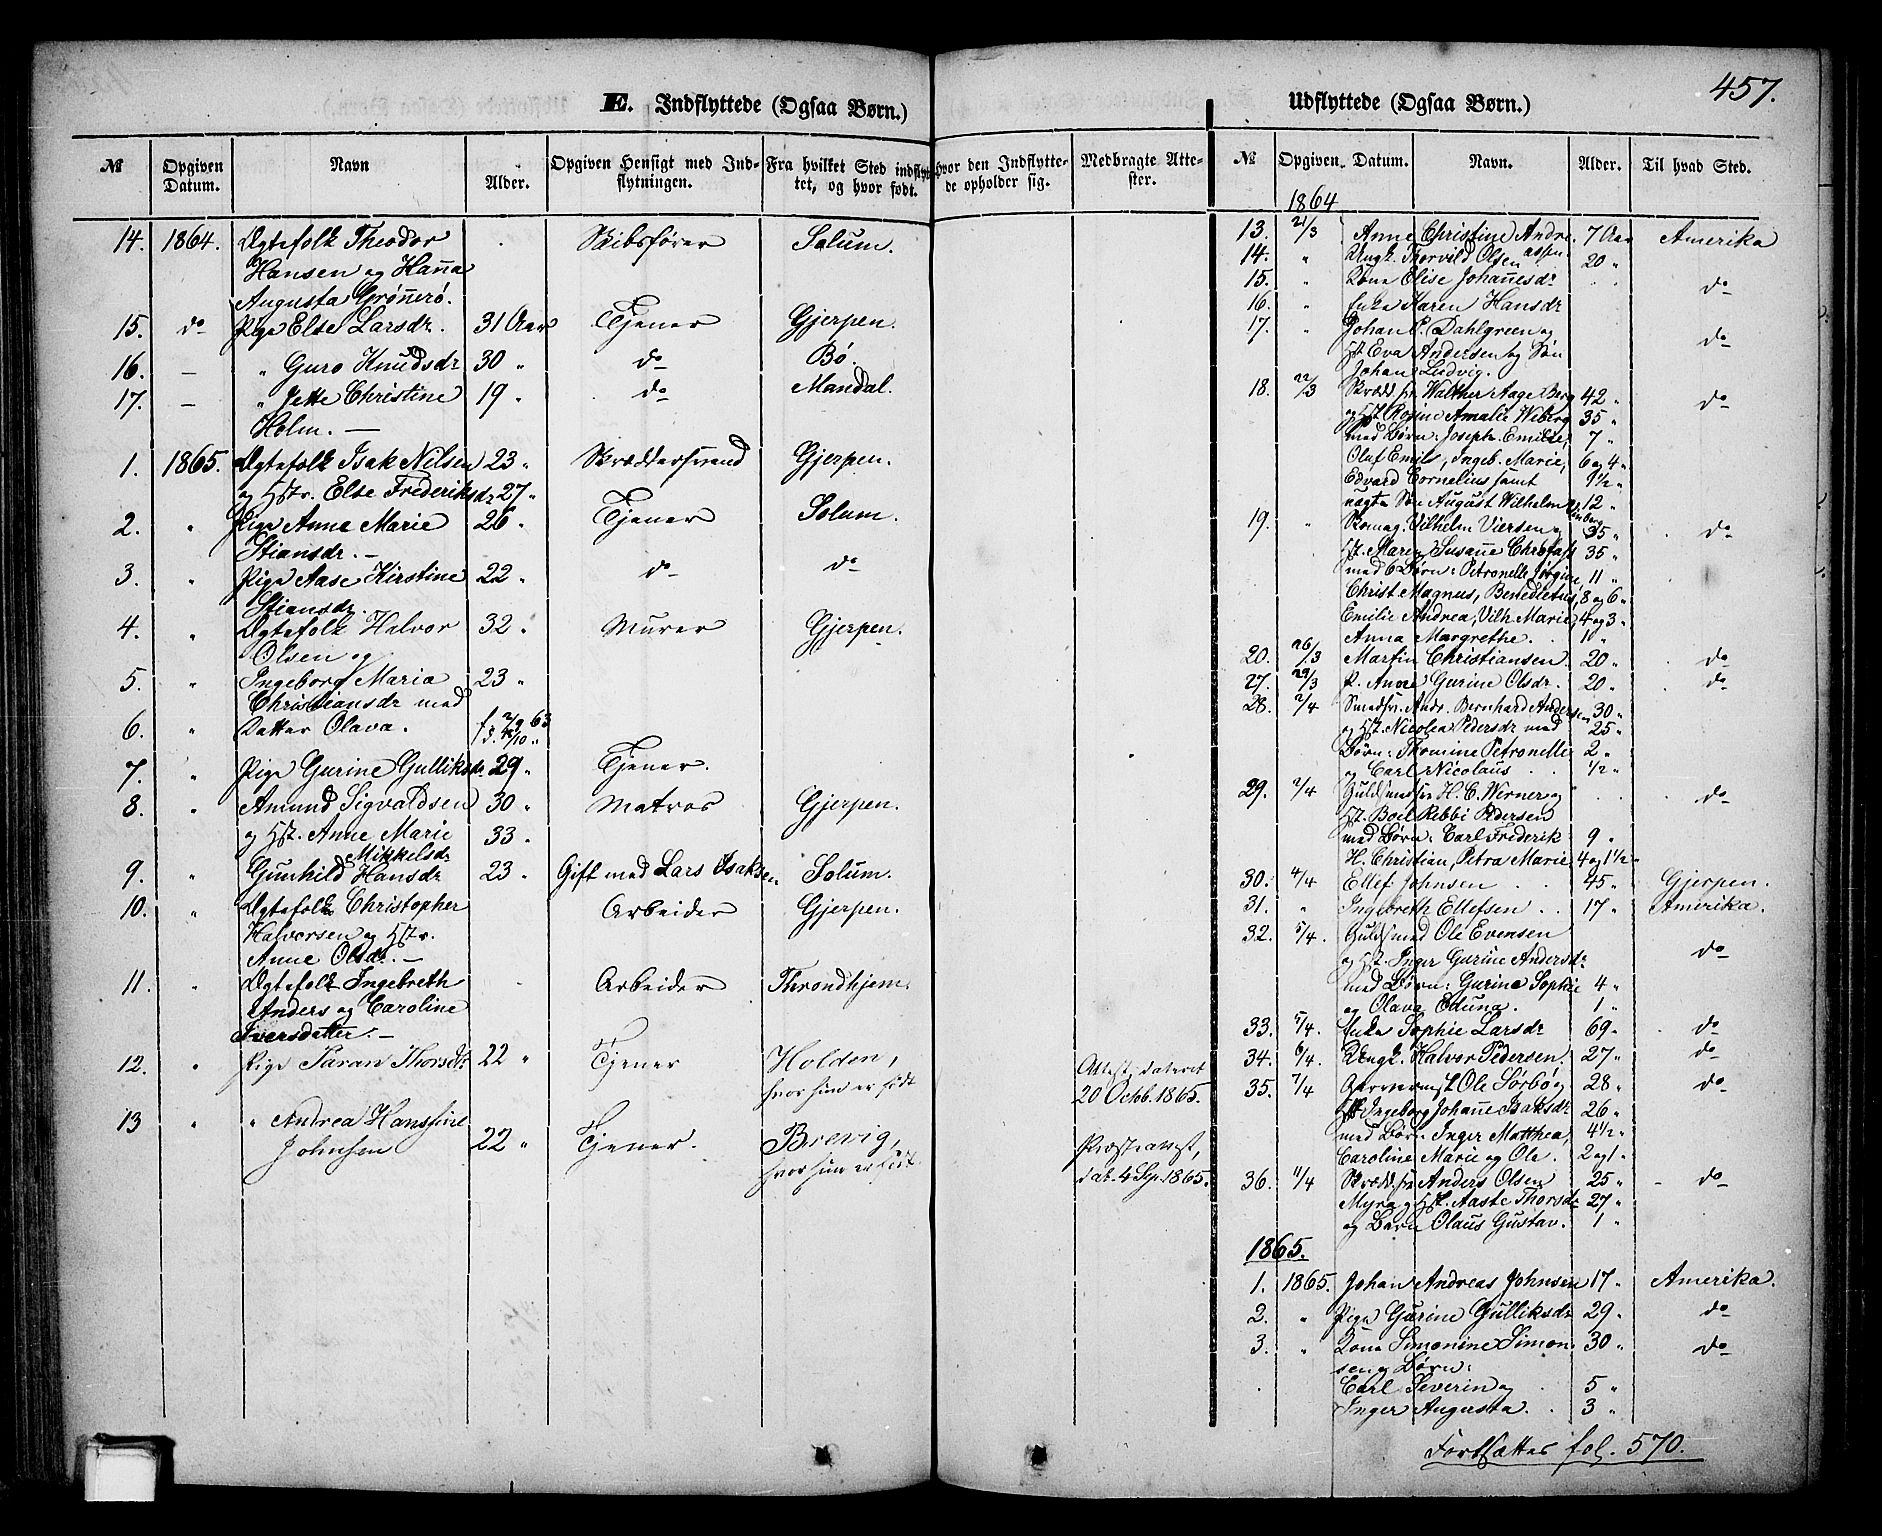 457.
E. Indflyttede (Ogsaa Børn.)
№ Opgiven Datum. Navn Alder. Opgiven Hensigt med Indflytningen. Fra hvilket Sted indflyttet, og hvor født. Hvor den Indflyttede opholder sig. Medbragte Attester.
14. 1864. Ægtefolk Theodor . Skibsfører Solum.
Hansen og Hanna
Augusta Grønnerö.
15. do Pige Else Larsdr. 31 Aar Tjener Gjerpen.
16. — " Guro Knudsdr 30 " do Bö.
17. — " Jette Christine 19 " do Mandal.
Holm. —
1. 1865. Ægtefolk Isak Nilsen 23 " Skrædersvend Gjerpen.
og Hstr. Else Frederiksdr 27 "
2. " Pige Anne Marie 26 " Tjener Solum.
Stiansdr. —
3. " Pige Aase Kirstine 22 " do do
Stiansdr.
4. " Ægtefolk Halvor 32 " Murer Gjerpen.
Olsen og
5. " Ingeborg Maria 23 "
Christiansdr med
6. " Datter Olava. f. 2/9 63
7. " Pige Gurine Gulliksdr 29 " Tjener.
8. " Amund Sigvaldsen 30 " Matros Gjerpen.
og Hst. Anne Marie 33 "
Mikkelsdr
9. " Gunhild Hansdr 23 " Gift med Lars Isaksen Solum.
10. " Ægtefolk Christopher Arbeider Gjerpen.
Halvorsen og Hstr.
Anne Olsdr. —
11. " Ægtefolk Ingebreth . Arbeider Throndhjem.
Anders og Caroline
Iversdatter. —
12. " Pige Taran Thorsdr 22 " Tjener Holden, Attest dateret
hvor hun er födt 20 Octb. 1865.
13 " " Andrea Hansine
Johnsen 22 " Tjener. Brevig, Præsteattest,
hvor hun er födt dat. 4 Sep. 1865.
Udflyttede (Ogsaa Børn.)
№ Opgiven Datum. Navn. Alder. Til hvad Sted.
1864
13. 21/3 Anne Christine Andre 7 Aar Amerika
14. " Ungk. Thorvild Olsen 20 "
15. " Kone Elise Johannesdr . do
16. " Enke Karen Hansdr
17. " Johan P. Dahlgreen og do
Hst. Eva Andersen og Sön
Johan Ludvig.
18. 22/3 Skrædd fr Walther Aage Berg 42 " do
og Hst. Rosine Amalie Wiberg 35 "
med Börn: Joseph Emilie, 7 "
Oluf Emil, Ingeb. Marie, 6 og 4 "
Edvard Cornelius samt 9 1/2 "
Sön August Wilhelm 12 "
19. " Skomag. Vilhelm Viersen og 35 " . do
Hst. Maren Susanne 35 "
med 6 Börn: Petronelle Jörgine, 11 "
Christ Magnus, Benedictus, 8 og 6 "
Emilie Andrea, Vilh Marie, 4 og 3 "
Anna Margrethe. . . 1 "
20. 26/3 Martin Christiansen 20 " . do
27. 29/3 P. Anne Gurine Olsdr. 20 " . do
28. 2/4 Smedsv. Ands. Bernhard Andersen 30 "
og Hst. Nicolea Pedersdr med 25 "
Börn: Thomine Petronelle 2 "
og Carl Nicolaus . . 1/2 "
29. 2/4 Guldsmed H. C. Werner og . . do
Hst. Boel Rebbi Pedersen
med Börn: Carl Frederik 9 "
H. Christian, Petra Marie 4 og 1 1/2 "
30. 4/4 Ellef Johnsen . . 45 " Gjerpen.
31. " Ingebreth Ellefsen . . 17 " Amerika.
32. 5/4. Guldsmed Ole Evensen
og Hst. Inger Gurine Andersdr do
med Börn: Gurine Sophie 4 "
og Olava Eduna. 1 "
33. 5/4. Enke Sophie Larsdr 69 " . do
34. 6/4. Ungk. Halvor Pedersen 27 " do
35. 7/4 Garverm Ole Sörbö og 28 " do
Hst Ingeborg Johanne Isaksdr 26 "
med Börn Inger Matthea, 4 1/2 "
Caroline Marie og Ole. 2 og 1 "
36. 11/4 Skrædd. fr Anders Olsen 25 " do
Myra og Hst. Aaste Thorsdr 27 "
og Barn Olaus Gustav. 1 "
1865.
1. 1865. Johan Andreas Johnsen 17 " Amerika.
2. " Pige Gurine Gulliksdr 29 " do
3. " Kone Simonine Simon- 30 " do
sen og Börn:
Carl Severin og . 5 "
Inger Augusta. . 3 "
Fortsættes fol. 570.